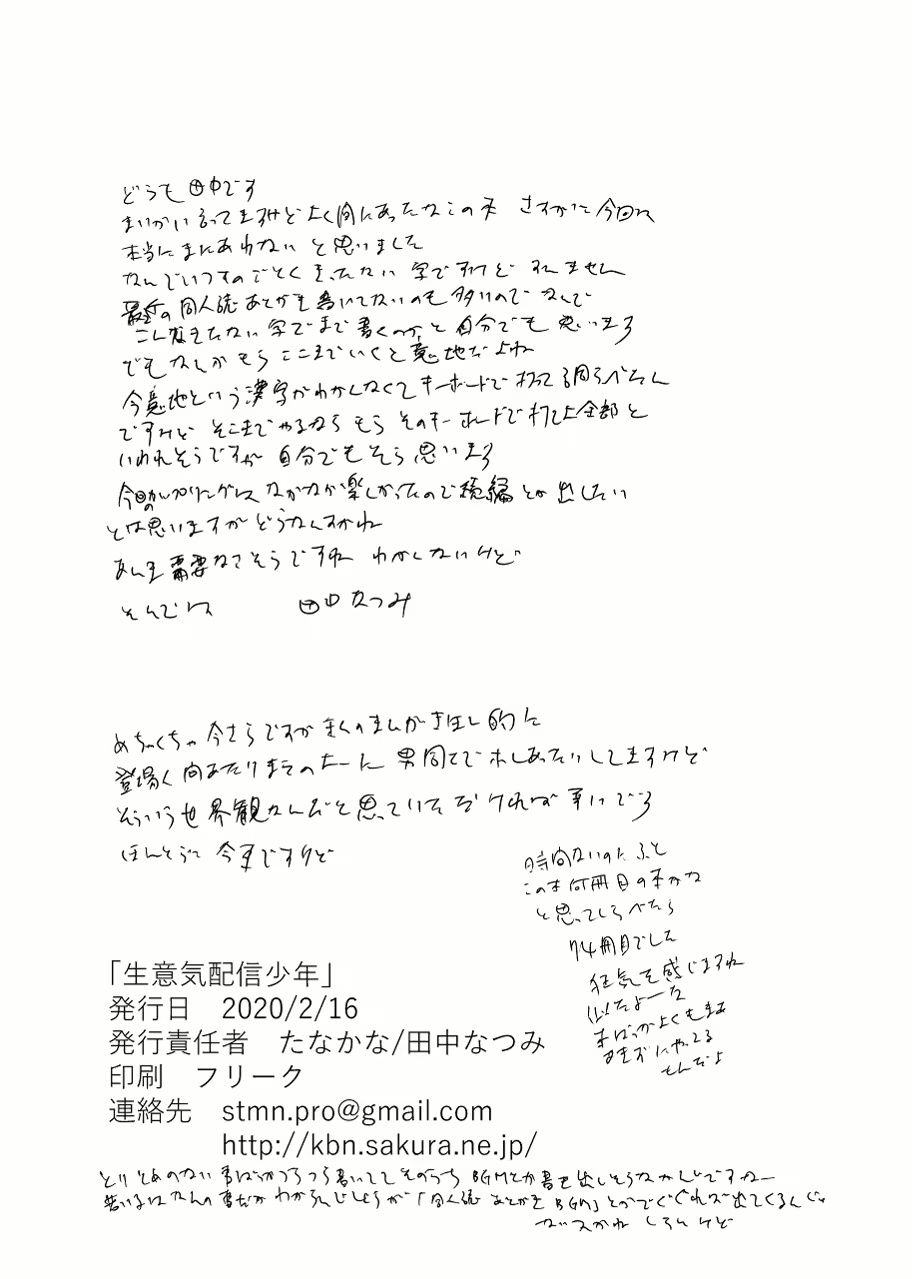 どうも 田中です
まいかい言ってますけどよく間にあったなこの本 さすがに今回は
本当にまにあわない と思いました
なんでいつものごとくきったない 字ですけど すいません
最近の同人誌あとがき書いてないのも多いので なんで
こんなきたない字でまで書くのか と自分でも思います
でもなんかもう ここまでいくと意地だよね
今意地という漢字がわかんなくてキーボードで打って調べたん
ですけど そこまでやるなら もう そのキーボードで打てよ全部と
いわれそうですが 自分でもそう思います
今回のカップリングは なかなか楽しかったので続編とか出したい
とは思いますが どうなんすかね
あんま需要なさそうですね わかんないけど
そんでは 田中なつみ
めちゃくちゃ今さらですが ぼくのまんが
登場 男同士で してますけど
そういう世界観なんだと思っていただければ幸いです
ほんとうに 今更ですけど
時間ないのに ふと
この本何冊目の本かな
と思ってしらべたら
74冊目でした
狂気を感じますね
似たよーな
本ばっかよくもまあ
あきずにやってる
もんだよ
「生意気配信少年」
発行日 2020/2/16
発行責任者 たなかな/田中なつみ
印刷 フリーク
連絡先 stmn.pro@gmail.com
http://kbn.sakura.ne.jp/
とりとめのない事ばっかつらつら書いてて そのうち BGMとか書き出しそうなかんじですねー
若い子はなんの事だかわからんでしょうが「同人誌 あとがき BGM」とかでググれば出てくるんじゃ
ないスかね しらんけど